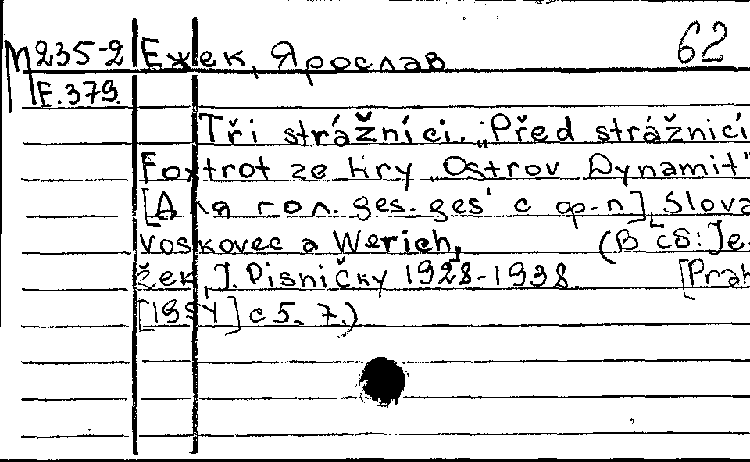 62
М235-2 Ежек, Ярослав
Е.379.
Tři strážníci. „Před strážnicí
Foxtrot ze hry „Ostrov Dynamit"
[Для гол. ges-ges' с ф-п]. Slova
Voskovec a Werich, (В сб: Je-
žek, J. Pisničky 1928-1938 [Prah
[1954] с 5. 7.)